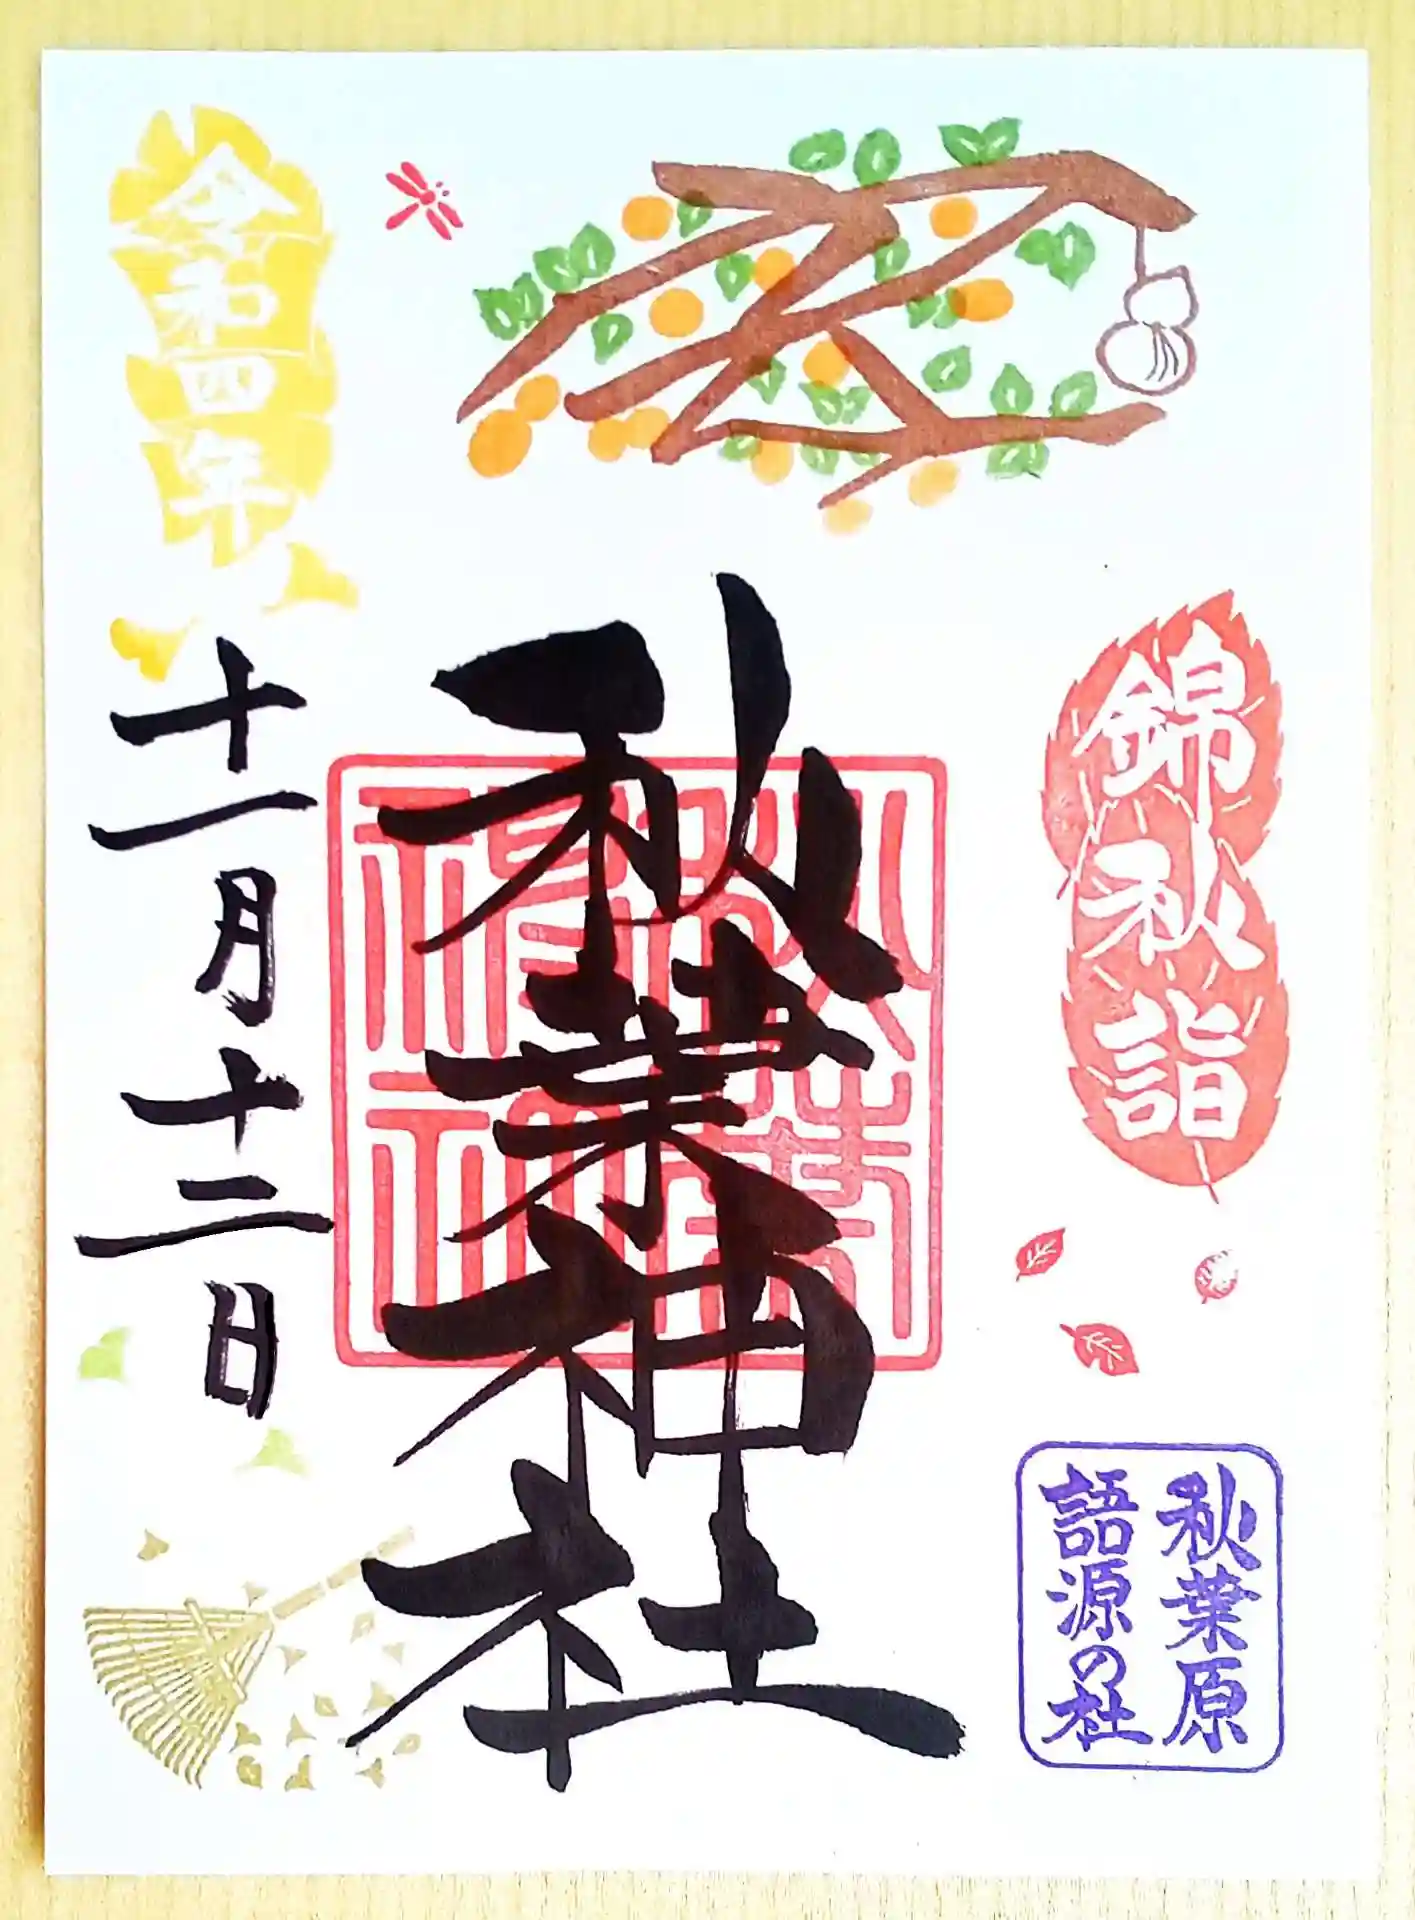 錦秋詣
秋葉原
語源の杜
秋葉神社
秋葉神社
令和四年
十一月十二日